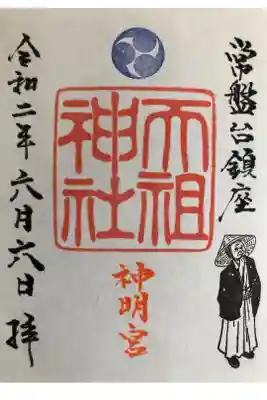 常盤台鎮座
天祖
神社
神明宮
令和二年六月六日拝